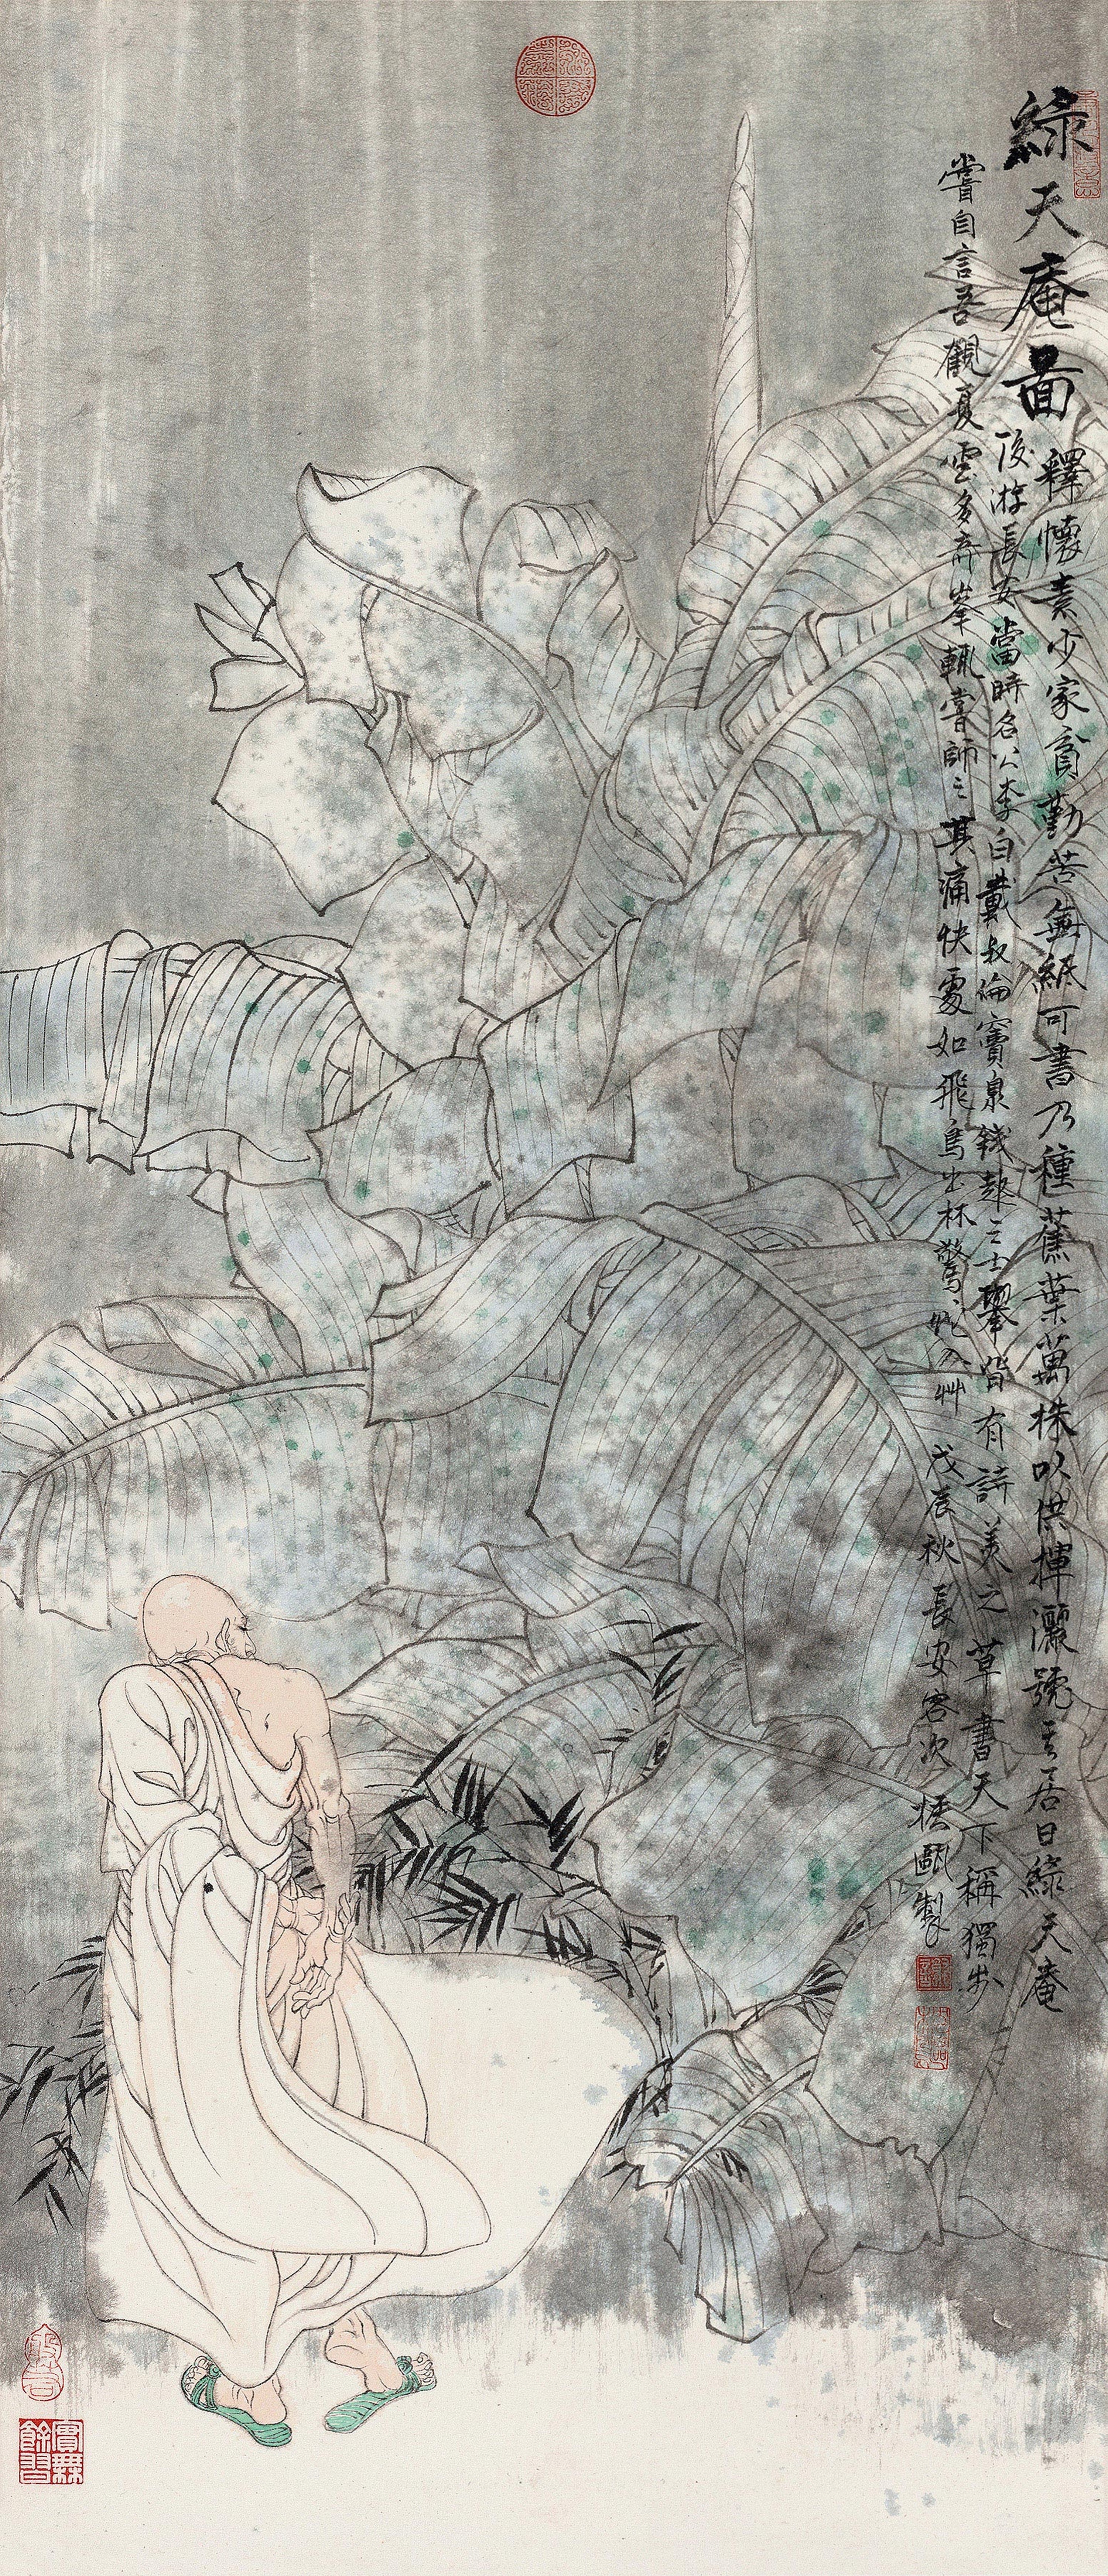 綠天庵圖
釋懷素少家貧勤苦無紙可書乃種蕉葉萬株以供揮灑號其居曰綠天庵
後游長安當時名公李白戴叔倫竇泉錢起之士舉皆有詩美之草書天下稱獨步
嘗自言吾觀夏雲多奇峯輒嘗師之其痛快處如飛鳥出林驚蛇入艸
戊辰秋長安客次
製
實無餘習